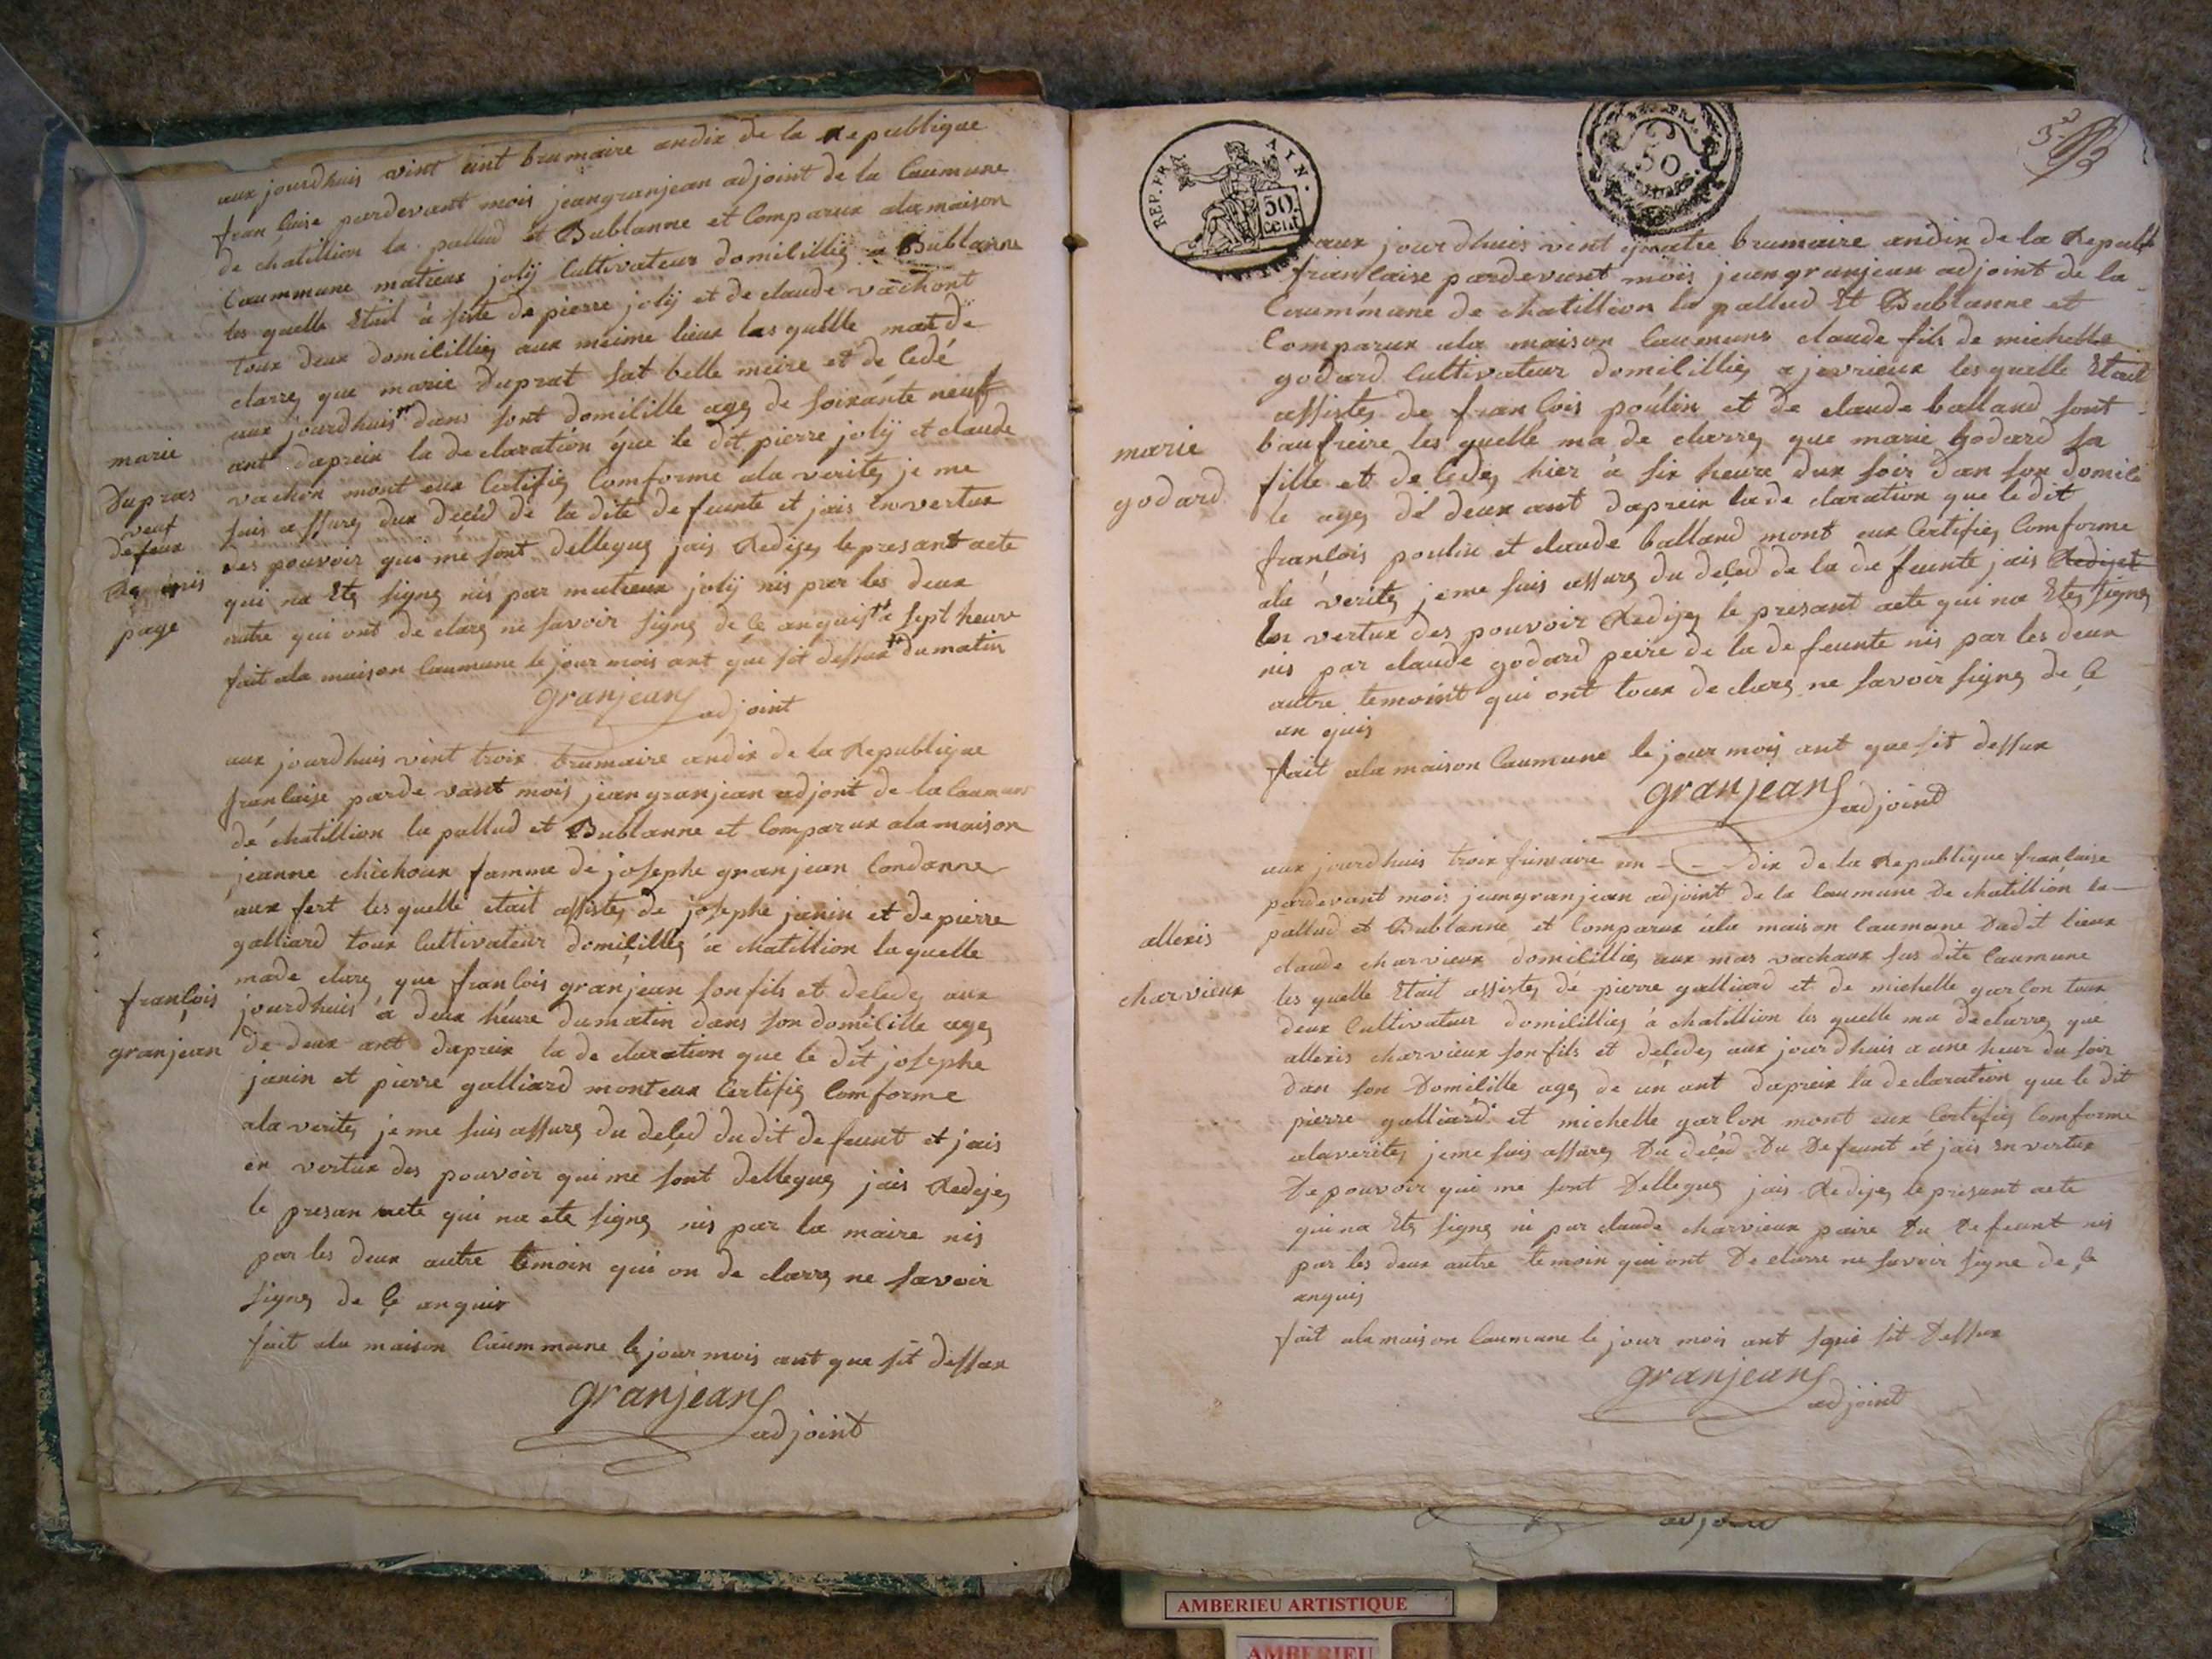 aux jourdhuis vint uint brumaire andix de la Republique
francaise pardevant mois jeangranjean adjoint de la Caumune
de châtillion la pallud et Bublanne et Comparux ala maison
Caummune matieux jolÿ Cultivateur domicillieʒ a Bublanne
les quelle Etait à siste de pierre jolÿ et de claude vachont
toux deux domicillieʒ aux meime lieux lesquelle mat de
clarreʒ que marie Duprat sat belle meire et de Cedé
aux jourdhuis dans sont domicille ageʒ de soixante neuf
ant daprein la de claration que le dit pierre jolÿ et claude
vachon mont eux Certifieʒ Comforme ala veriteʒ je me
suis assureʒ dux déçed de la dite de feunte et jais En vertux
des pouvoir qui me sont dellegueʒ jais Redijeʒ le presant acte
qui na Eteʒ signeʒ nis par matieux jolÿ nis par les deux
autre qui ont de clareʒ ne savoir signeʒ de çe anquis à sept heure
fait ala maison Caumune le jour mois ant que sit dessux du matin
granjean
adjoint
marie
Dupras
veuf
defeux
page
aux jourdhuis vint troix brumaire andix de la Republique
francaise parde vant mois jean granjean adjont de la Caumune
de chatillion la pallud et Bublanne et Comparux ala maison
jeanne chichoux famme de josephe granjean Condanne
aux fert les quelle etait assisteʒ de josephe janin et de pierre
galliard toux Cultivateur domiçillieʒ à chatillion la quelle
made clareʒ que francois granjean son fils et decedeʒ aux
jourdhuis à deux héure dumatin dans son domicille ageʒ
de deux ant daprein la de claration que le dit josephe
janin et pierre galliard mont eux Certifieʒ Comforme
ala veriteʒ je me suis assureʒ du deçed du dit defeunt et jais
en vertux des pouvoir qui me sont dellegueʒ jais Redijeʒ
le presan acte qui na ete signeʒ nis par la maire nis
par les deux autre temoin qui on de clarreʒ ne savoir
signeʒ de çe anquis
fait ala maison Caummune le jour mois ant que sit dessux
granjean
adjoint
françois
granjean
REP. FRA
AIN.
50
cent
50
aux jourdhuis vint quatre brumaire andix de la Republ
francaise pardevant mois jeangranjean adjoint de la
Caummune de chatillion la pallud Et Bublanne et
Comparux ala maison Caumune claude fils de michelle
godard Cultivateur domicillieʒ a jevrieux les quelle Etait
assisteʒ de francois poulin et de claude balland sont
baufreire les quelle ma de clarreʒ que marie godard sa
fille et de Cedeʒ hier à six heure dux soir dan son domici
le ageʒ de deux ant daprein la de claration que le dit
francois poulin et claude balland mont eux Certifieʒ Comforme
ala veriteʒ jeme suis assureʒ du deçed de la de feunte jais Redijet
En vertux des pouvoir Redijeʒ le presant acte qui na Eteʒ signeʒ
nis par claude godard peire de la de feunte nis par les deux
autre temoint qui ont toux de clareʒ ne savoir signeʒ de çe
an quis
fait ala maison Caumune le jour mois ant que sit dessux
granjean
adjoint
marie
godard
aux jourdhuis troix frimaire an dix de la Republique francaise
pardevant mois jeangranjean adjoint de la Caumune de chatillion la
pallud et Bublanne et Comparux ala maison Caumune Dadit lieux
claude charvieux domicillieʒ aux mas vachaux sus dite Caumune
les quelle Etait assisteʒ de pierre galliard et de michelle garcon toux
deux Cultivateur domicillieʒ à chatillion les quelle ma declarreʒ que
allexis charvieux son fils et deçedeʒ aux jourdhuis a une heur du soir
dan son Domicille ageʒ de un ant daprein la declaration que le dit
pierre galliard et michelle garcon mont eux Certifieʒ Comforme
ala veriteʒ jeme suis assureʒ Du deçed Du Defeunt et jais En vertux
De pouvoir qui me sont Dellegueʒ jais Redijeʒ le presant acte
qui na Eteʒ signeʒ ni par claude charvieux paire Du Defeunt nis
par les deux autre temoin qui ont De clarre ne savoir signe de çe
anquis
fait ala maison Caumune le jour mois ant que sit Dessux
granjean
adjoint
allexis
charvieux
AMBERIEU ARTISTIQUE
AMBERIEU